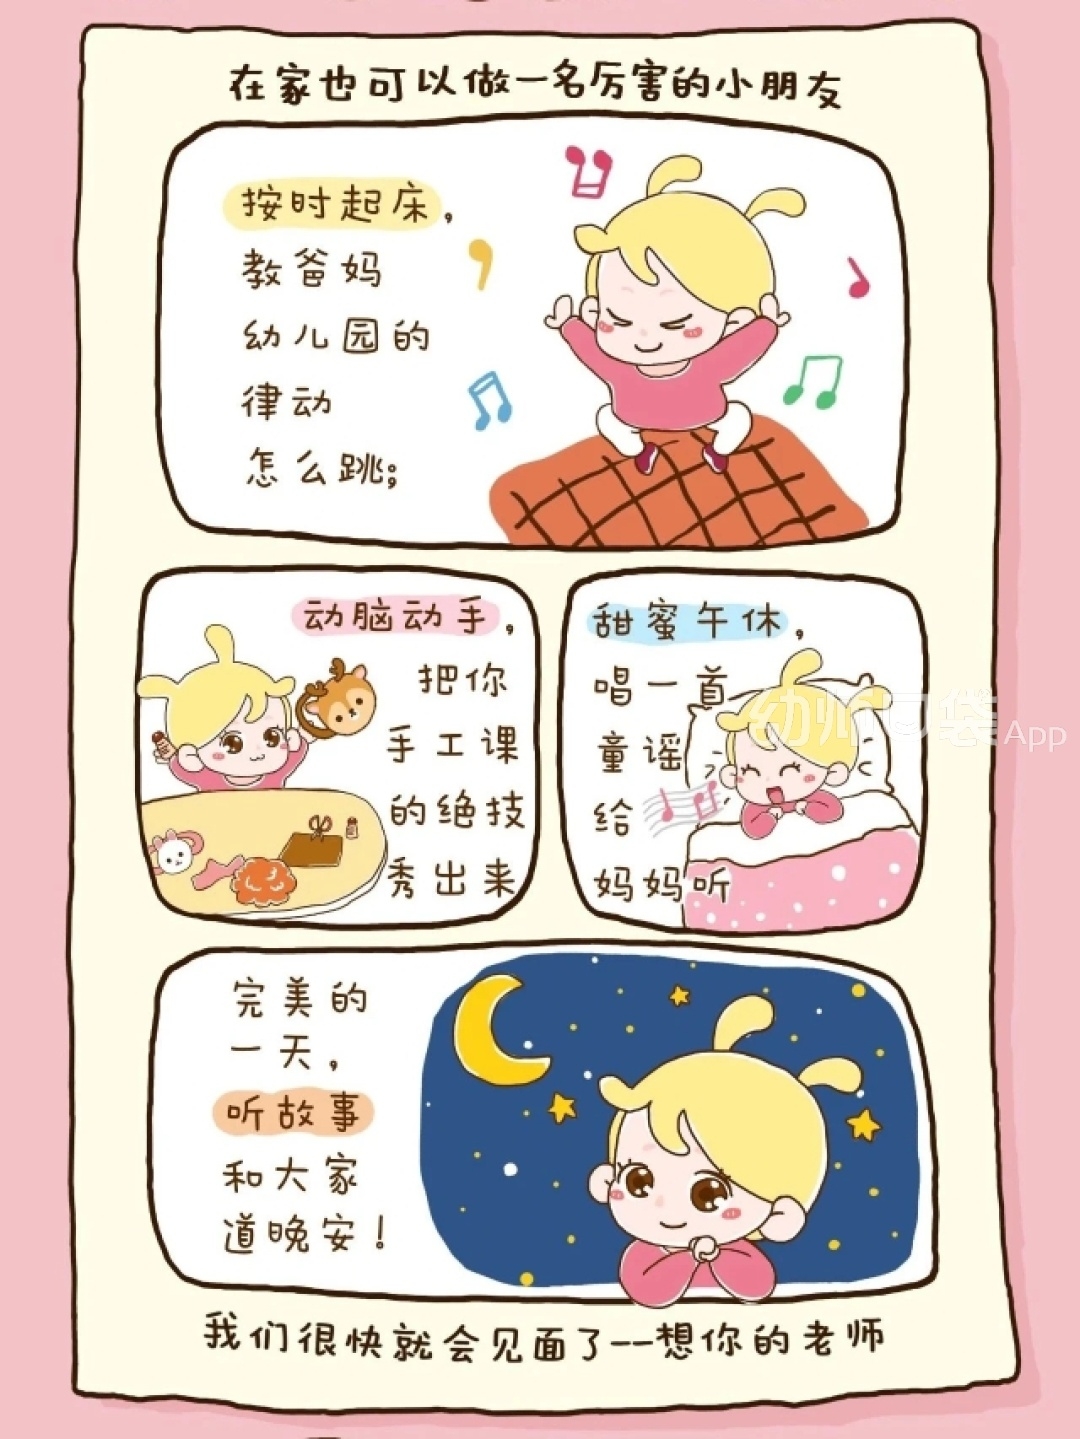 在家也可以做一名厉害的小朋友
按时起床，
教爸妈
幼儿园的
律动
怎么跳；
动脑动手，
把你
手工课
的绝技
秀出来
甜蜜午休，
唱一首
童谣
给
妈妈听
幼师口袋App
完美的
一天，
听故事
和大家
道晚安！
我们很快就会见面了--想你的老师